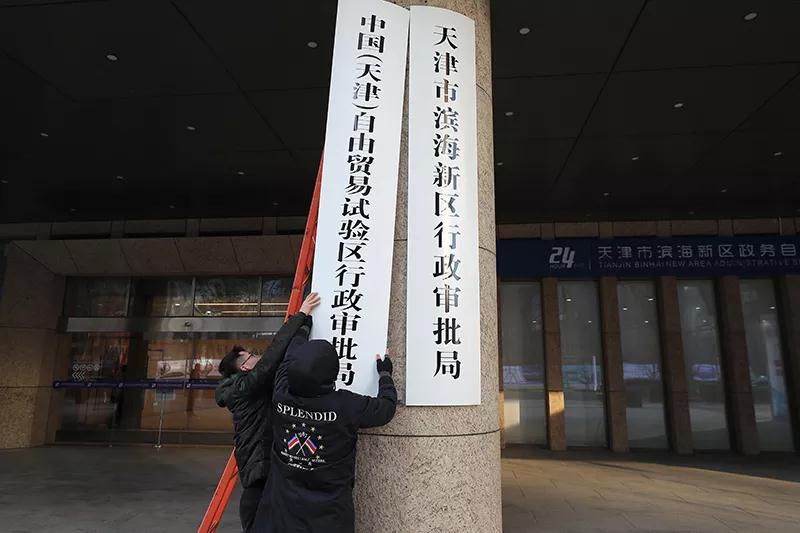 中国(天津)自由贸易试验区行政审批
天津市滨海新区行政审批局
24
HOUR
天津市滨海新区政务自
TIANJIN BINHAI NEW AREA ADMINISTRATIVE S
SPLENDID